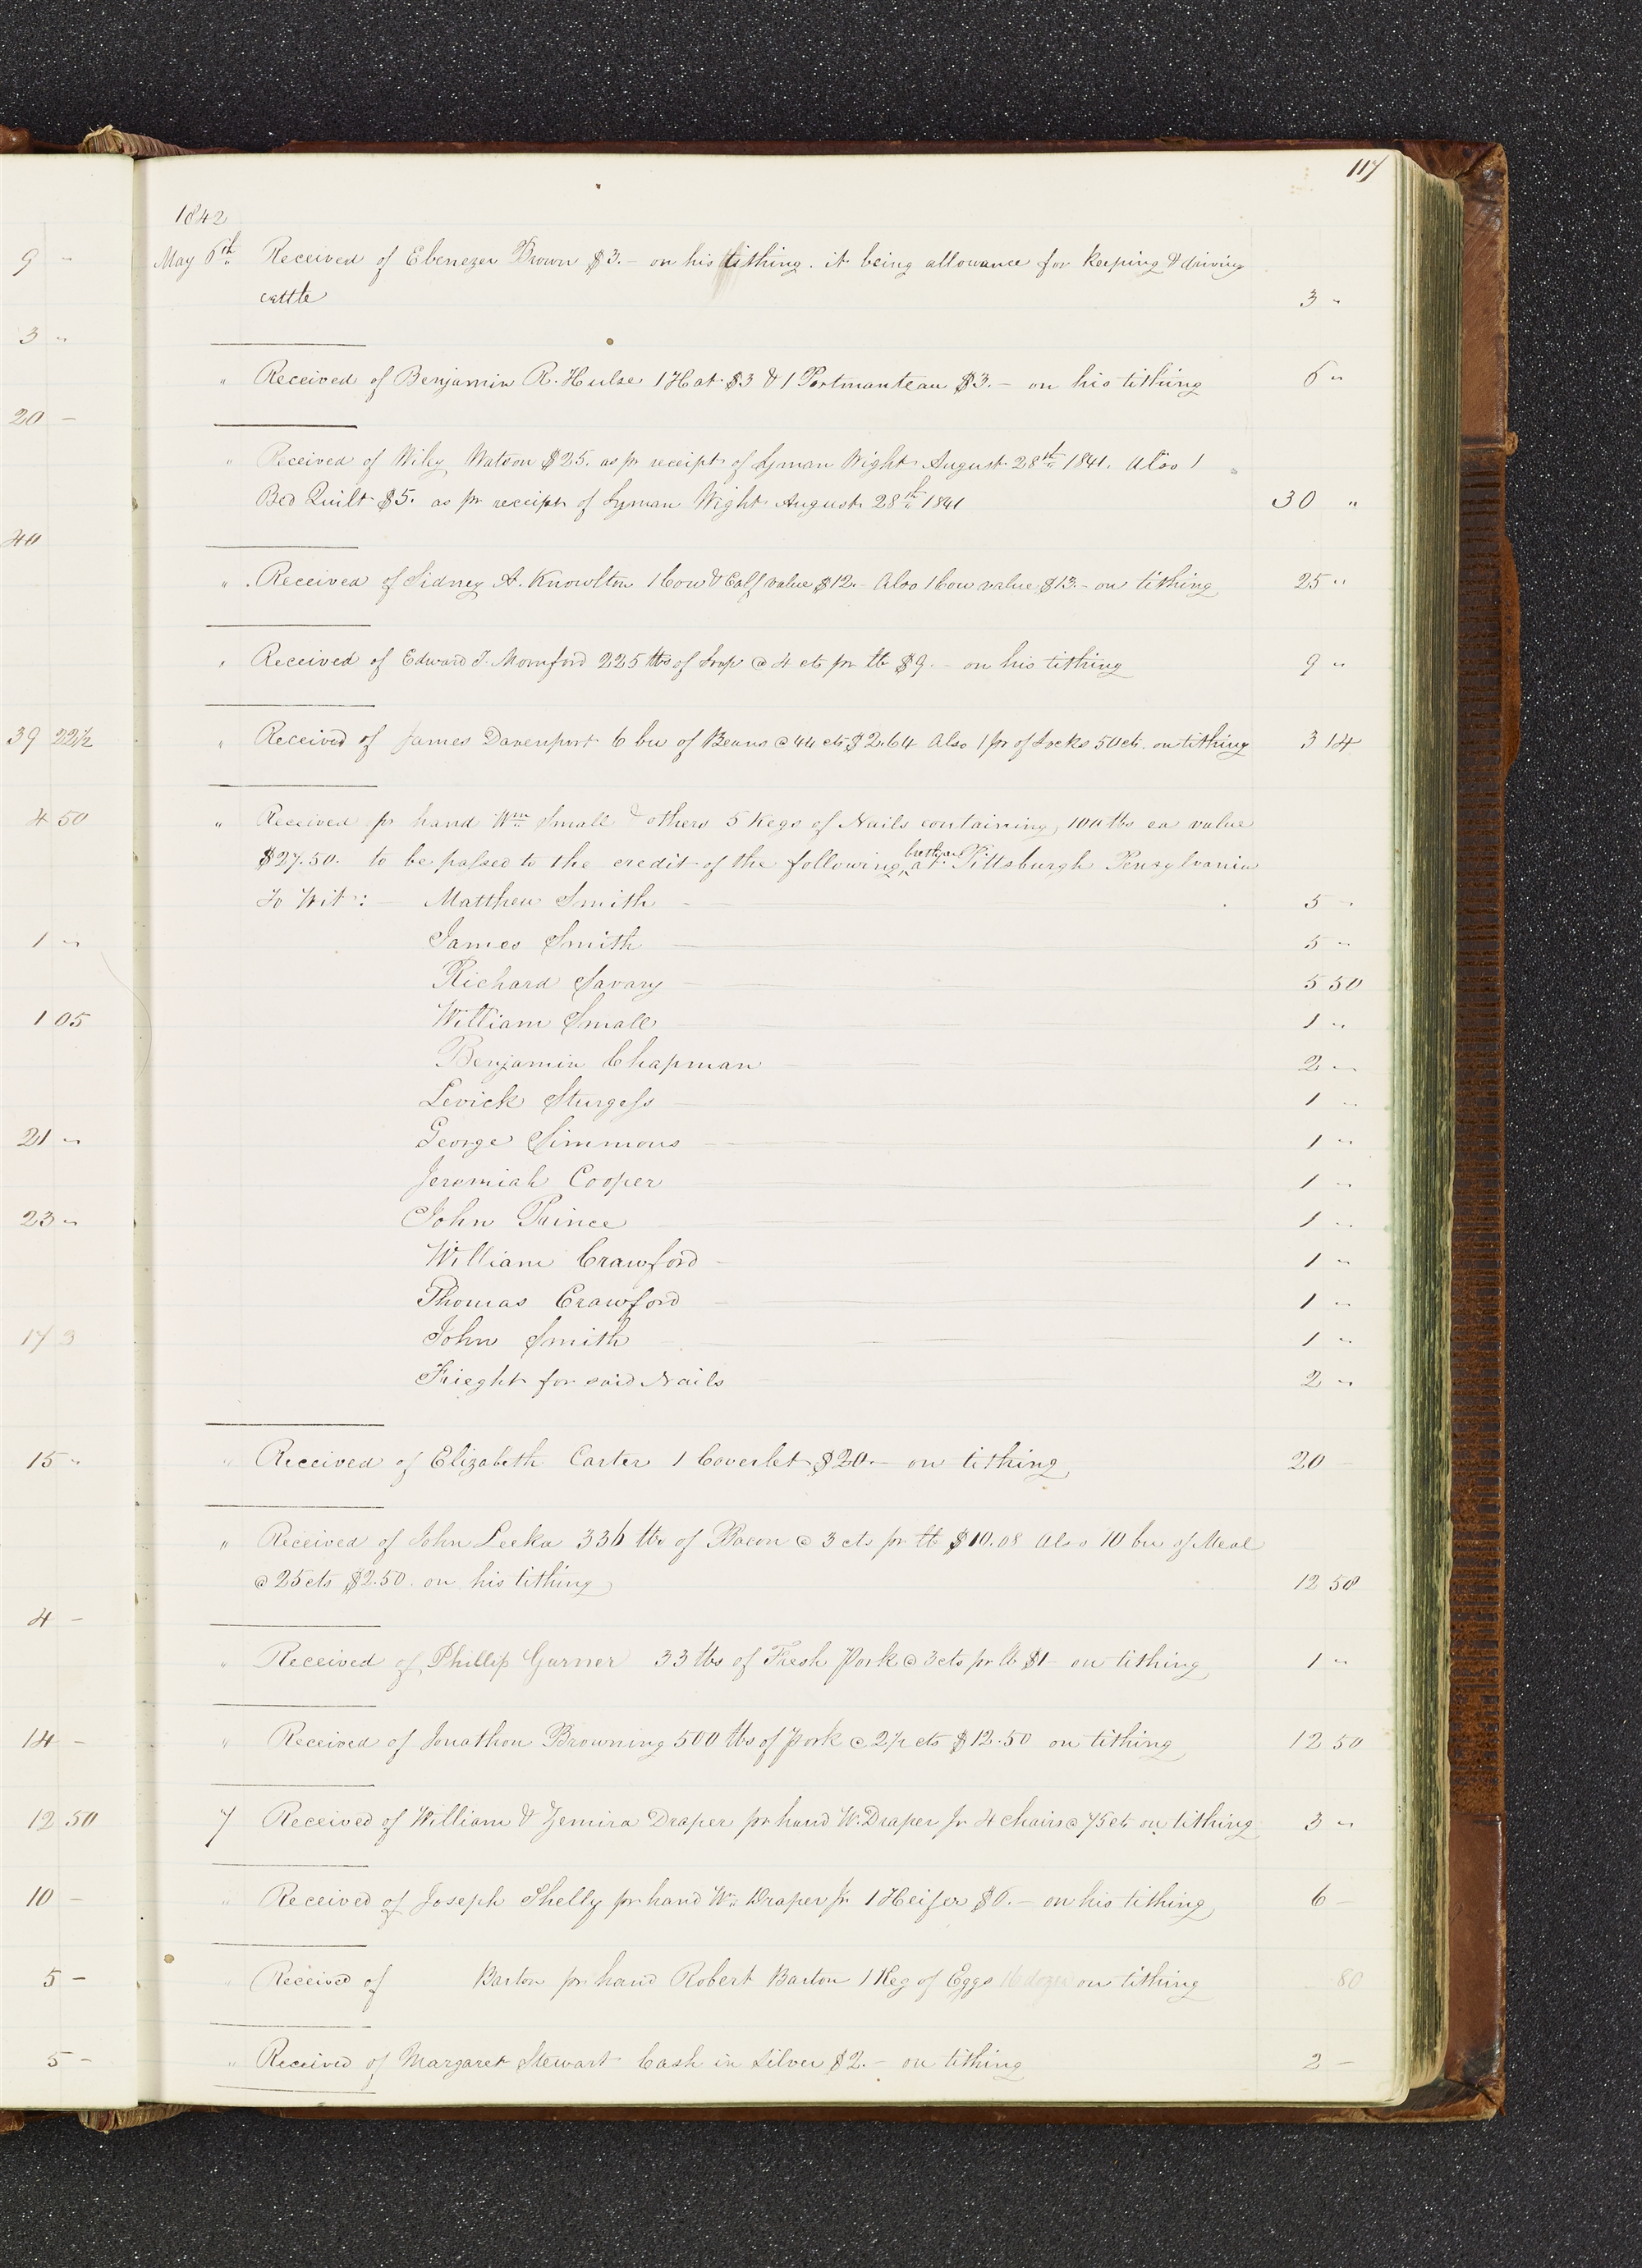 117
1842
May 6th Received of Ebenezer Brown $3.– on his tithing. it being allowance for keeping & driving
cattle 3 "
" Received of Benjamin R. Hulse 1 Hat $3 & 1 Portmanteau $3.– on his tithing 6 "
" Received of Wiley Watson $25. as pr receipt of Lyman Wight August 28th 1841. Also 1
Bed Quilt $5. as pr receipt of Lyman Wight August 28th 1841 30 "
" Received of Sidney A. Knowlton 1 Cow & Calf value $12.– Also 1 Cow value $13.– on tithing 25 "
" Received of Edward T. Momford 225 lbs of Soap @ 4 cts pr lb $9.– on his tithing 9 "
" Received of James Davenport 6 bu of Beans @ 44 cts $2.64 Also 1 pr of Socks 50 cts. on tithing 3 14
" Received pr hand Wm Small & others 5 Kegs of Nails containing 100 lbs ea value
$27.50. to be passed to the credit of the following brethren at Pittsburgh Pensylvania
To Wit: – Matthew Smith 5 "
James Smith 5 "
Richard Savary 5 50
William Small 1 "
Benjamin Chapman 2 "
Levick Sturgess 1 "
George Simmons 1 "
Jeremiah Cooper 1 "
John Prince 1 "
William Crawford 1 "
Thomas Crawford 1 "
John Smith 1 "
Frieght for said Nails 2 "
" Received of Elizabeth Carter 1 Coverlet $20.– on tithing 20 –
" Received of John Leeka 336 lbs of Bacon @ 3 cts pr lb $10.08 Also 10 bu of Meal
@ 25 cts $2.50. on his tithing 12 58
" Received of Phillip Garner 33 lbs of Fresh Pork @ 3 cts pr lb $1– on tithing 1 "
" Received of Jonathon Browning 500 lbs of Pork @ 2½ cts $12.50 on tithing 12 50
7 Received of William & Zemira Draper pr hand W. Draper Jr 4 chairs @ 75 cts on tithing 3 "
" Received of Joseph Shelly pr hand Wm Draper Jr 1 Heifer $6.– on his tithing 6 –
" Received of Barton pr hand Robert Barton 1 Keg of Eggs 16 dozen on tithing 80
" Received of Margaret Stewart Cash in Silver $2.– on tithing 2 –
9 –
3 "
20 –
40
39 22½
4 50
1 "
1 05
21 "
23 "
17 3
15 "
4 –
14 –
12 50
10 –
5 –
5 –